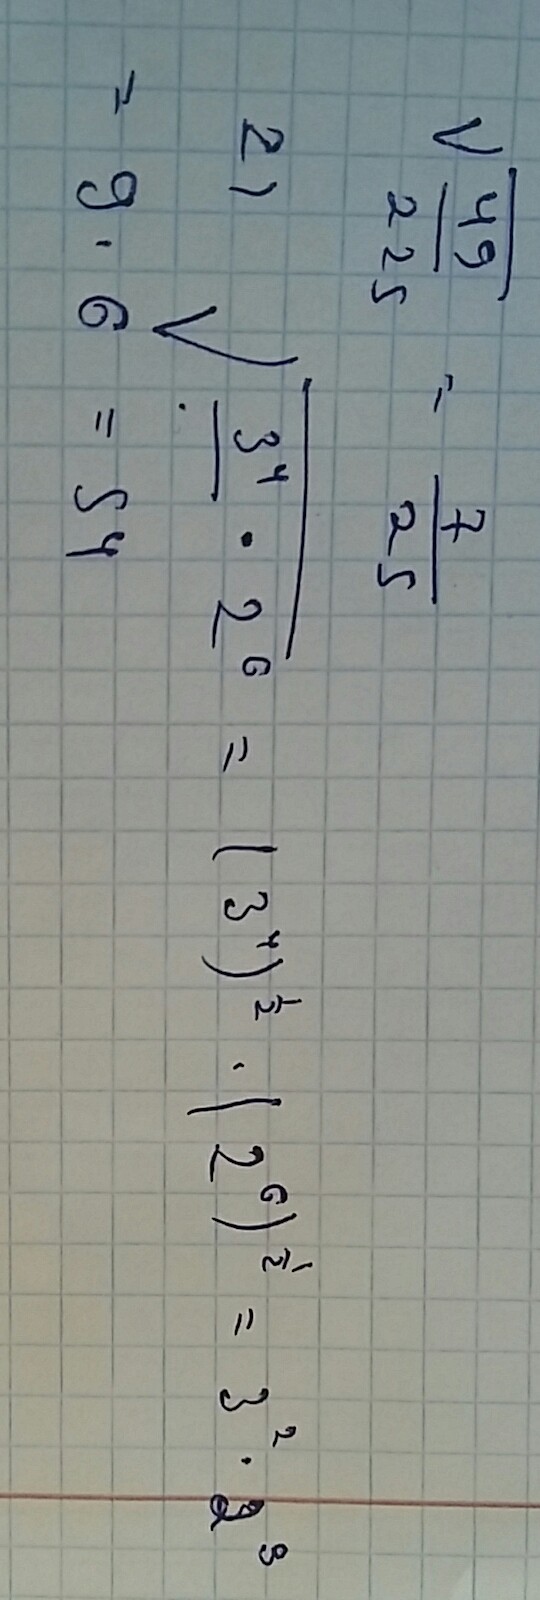 √(49/225) = 7/25
2) √(3⁴ · 2⁶) = (3⁴)^(1/2) · (2⁶)^(1/2) = 3² · 2³
= 9 · 6 = 54